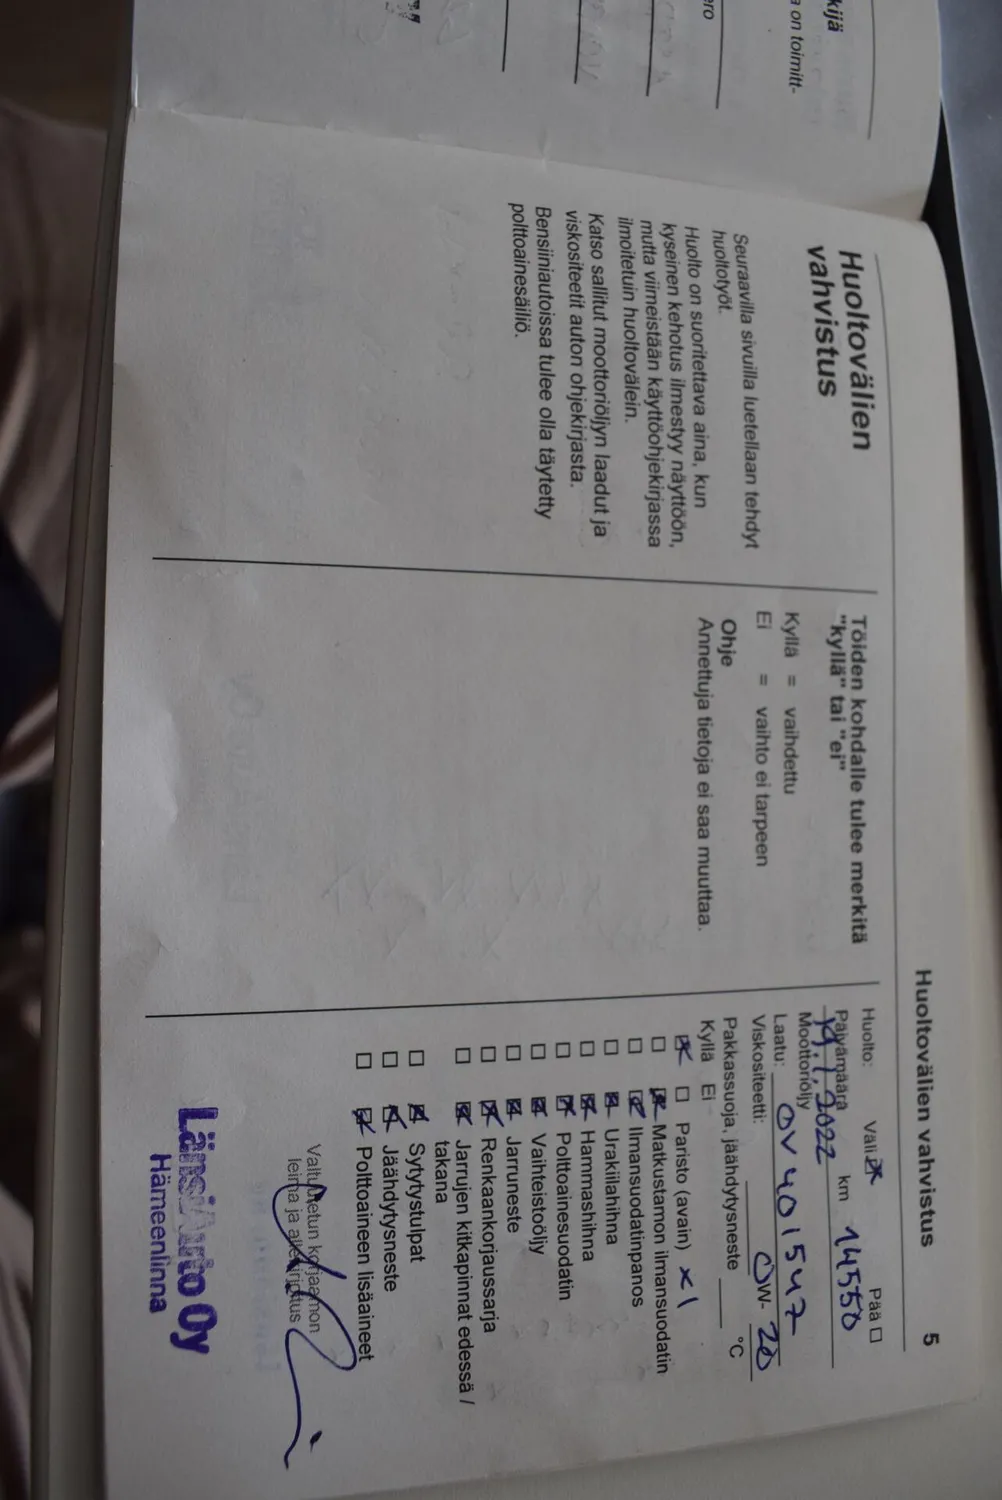 kijä
a on toimitt-
ero
Huoltovälien vahvistus 5
Huoltovälien
vahvistus
Seuraavilla sivuilla luetellaan tehdyt
huoltotyöt.
Huolto on suoritettava aina, kun
kyseinen kehotus ilmestyy näyttöön,
mutta viimeistään käyttöohjekirjassa
ilmoitetuin huoltovälein.
Katso sallitut moottoriöljyn laadut ja
viskositeetit auton ohjekirjasta.
Bensiiniautoissa tulee olla täytetty
polttoainesäiliö.
Töiden kohdalle tulee merkitä
"kyllä" tai "ei"
Kyllä = vaihdettu
Ei = vaihto ei tarpeen
Ohje
Annettuja tietoja ei saa muuttaa.
Huolto: Väli ☒ Pää ☐
Päivämäärä km 14550
19.1.2022
Moottoriöljy
Laatu: OV401547
Viskositeetti: 0W-20
Pakkassuoja, jäähdytysneste ____ °C
Kyllä Ei
☒ ☐ Paristo (avain) x1
☐ ☒ Matkustamon ilmansuodatin
☐ ☒ Ilmansuodatinpanos
☐ ☒ Urakilahihna
☐ ☒ Hammashihna
☐ ☒ Polttoainesuodatin
☐ ☒ Vaihteistoöljy
☐ ☒ Jarruneste
☐ ☒ Renkaankorjaussarja
☐ ☒ Jarrujen kitkapinnat edessä /
takana
☐ ☒ Sytytystulpat
☐ ☒ Jäähdytysneste
☐ ☒ Polttoaineen lisäaineet
Valtuutetun korjaamon
leima ja allekirjoitus
LänsiAuto Oy
Hämeenlinna